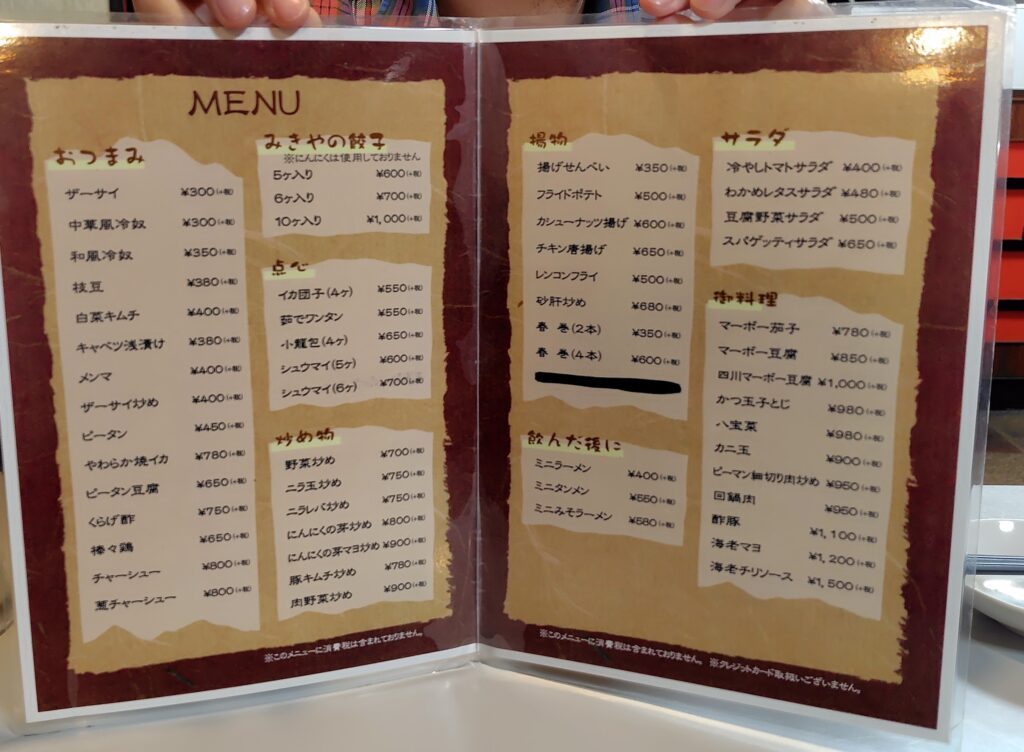 MENU
おつまみ
ザーサイ ¥300(+税)
中華風冷奴 ¥300(+税)
和風冷奴 ¥350(+税)
枝豆 ¥380(+税)
白菜キムチ ¥400(+税)
キャベツ浅漬け ¥380(+税)
メンマ ¥400(+税)
ザーサイ炒め ¥400(+税)
ピータン ¥450(+税)
やわらか焼イカ ¥780(+税)
ピータン豆腐 ¥650(+税)
くらげ酢 ¥750(+税)
棒々鶏 ¥650(+税)
チャーシュー ¥800(+税)
葱チャーシュー ¥800(+税)
みきやの餃子
※にんにくは使用しておりません
5ヶ入り ¥600(+税)
6ヶ入り ¥700(+税)
10ヶ入り ¥1,000(+税)
点心
イカ団子(4ヶ) ¥550(+税)
茹でワンタン ¥550(+税)
小籠包(4ヶ) ¥650(+税)
シュウマイ(5ヶ) ¥600(+税)
シュウマイ(6ヶ) ¥700(+税)
炒め物
野菜炒め ¥700(+税)
ニラ玉炒め ¥750(+税)
ニラレバ炒め ¥750(+税)
にんにくの芽炒め ¥800(+税)
にんにくの芽マヨ炒め ¥900(+税)
豚キムチ炒め ¥780(+税)
肉野菜炒め ¥900(+税)
※このメニューに消費税は含まれておりません。
揚物
揚げせんべい ¥350(+税)
フライドポテト ¥500(+税)
カシューナッツ揚げ ¥600(+税)
チキン唐揚げ ¥650(+税)
レンコンフライ ¥500(+税)
砂肝炒め ¥680(+税)
春 巻(2本) ¥350(+税)
春 巻(4本) ¥600(+税)
飲んだ後に
ミニラーメン ¥400(+税)
ミニタンメン ¥550(+税)
ミニみそラーメン ¥580(+税)
サラダ
冷やしトマトサラダ ¥400(+税)
わかめレタスサラダ ¥480(+税)
豆腐野菜サラダ ¥500(+税)
スパゲッティサラダ ¥650(+税)
御料理
マーボー茄子 ¥780(+税)
マーボー豆腐 ¥850(+税)
四川マーボー豆腐 ¥1,000(+税)
かつ玉子とじ ¥980(+税)
八宝菜 ¥980(+税)
カニ玉 ¥900(+税)
ピーマン細切り肉炒め ¥950(+税)
回鍋肉 ¥950(+税)
酢豚 ¥1,100(+税)
海老マヨ ¥1,200(+税)
海老チリソース ¥1,500(+税)
※このメニューに消費税は含まれておりません。 ※クレジットカード取扱いございません。